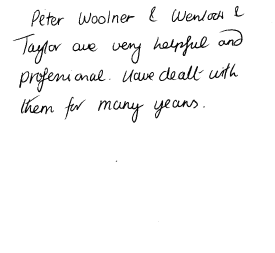 Peter Woolner & Wenlock &
Taylor are very helpful and
professional. Have dealt with
them for many years.